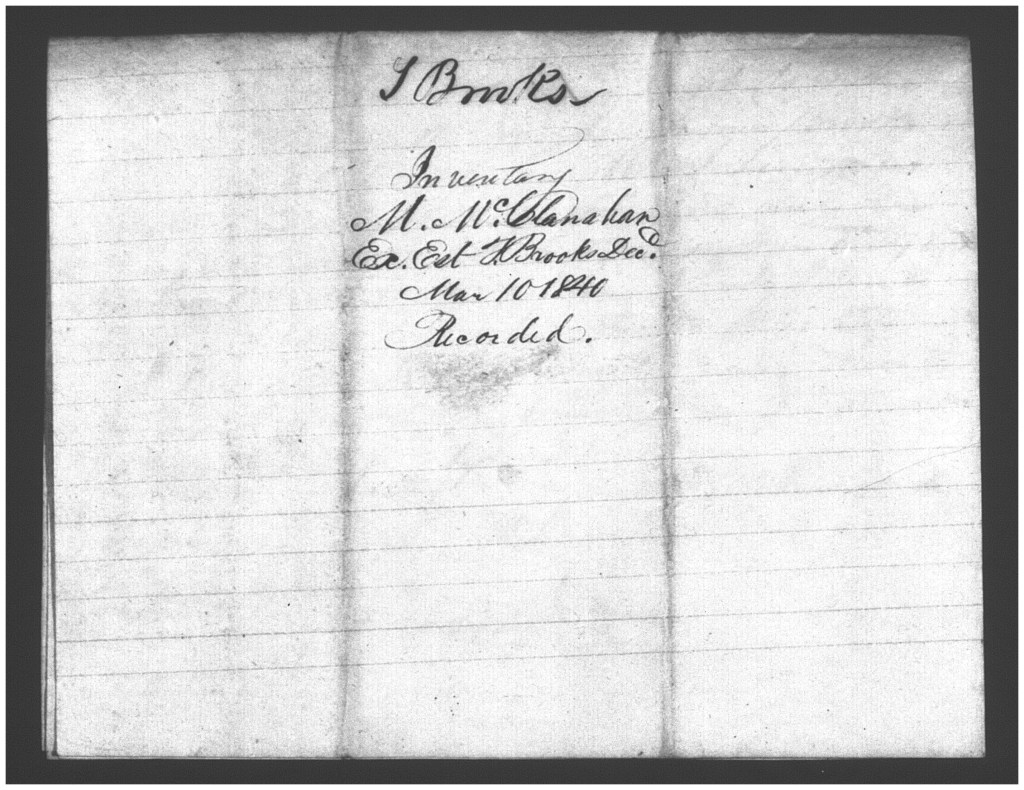 S Brooks
Inventory
M. McClanahan
Ex. Est Brooks Decd.
Mar 10 1840
Recorded.